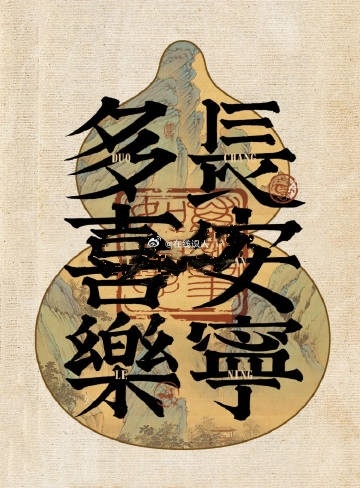 長安寧
多喜樂
CHANG
AN
NING
DUO
LE
@在线识人